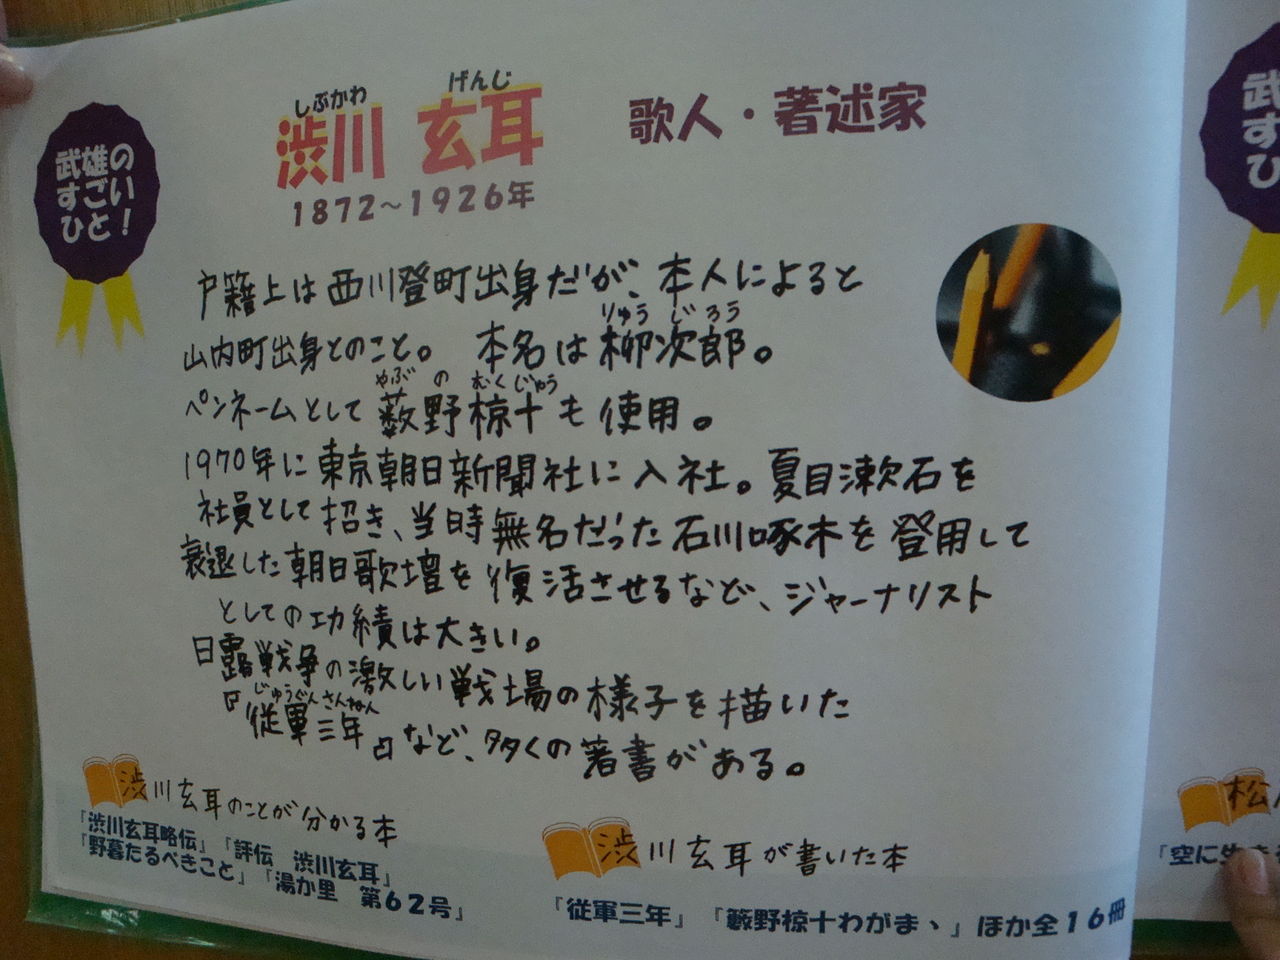 武雄の
すごい
ひと！
しぶかわ げんじ
渋川 玄耳 歌人・著述家
1872～1926年
戸籍上は西川登町出身だが、本人によると
りゅう じろう
山内町出身とのこと。 本名は柳次郎。
やぶ の むくじゅう
ペンネームとして薮野椋十も使用。
1970年に東京朝日新聞社に入社。夏目漱石を
社員として招き、当時無名だった石川啄木を登用して
衰退した朝日歌壇を復活させるなど、ジャーナリスト
としての功績は大きい。
日露戦争の激しい戦場の様子を描いた
じゅうぐんさんねん
『従軍三年』など、多くの著書がある。
渋川玄耳のことが分かる本
「渋川玄耳略伝」「評伝 渋川玄耳」
「野暮たるべきこと」「湯か里 第６２号」
渋川玄耳が書いた本
「従軍三年」「籔野椋十わがまゝ」ほか全１６冊
武
す
ひ
松
「空に